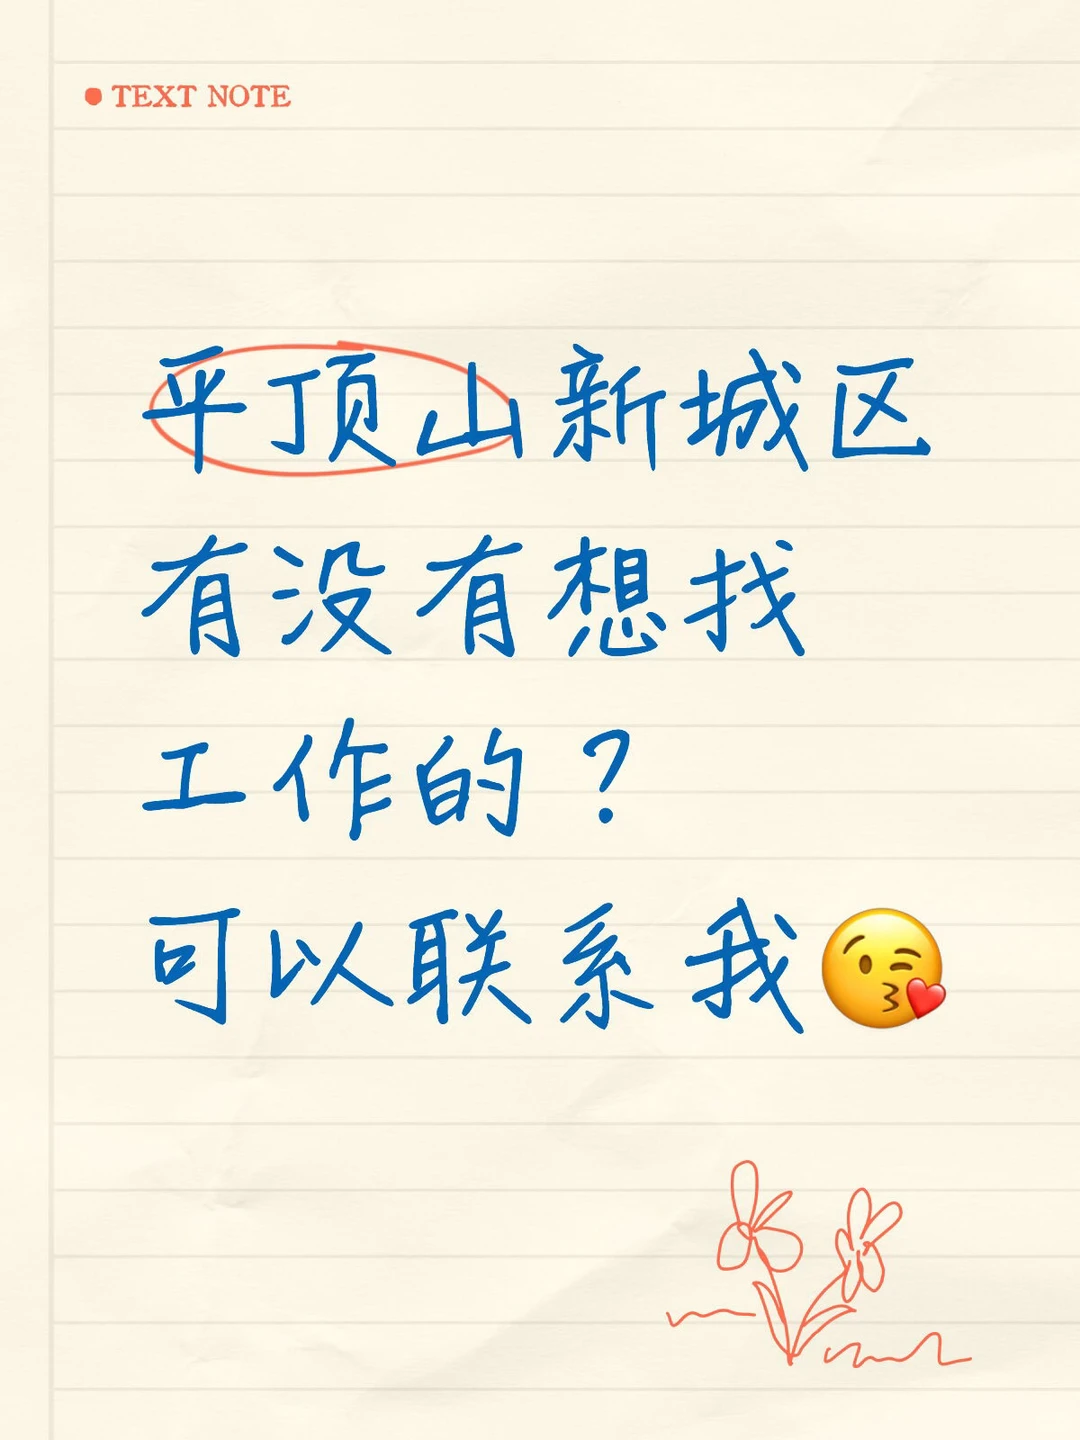 TEXT NOTE
平顶山新城区
有没有想找
工作的？
可以联系我😘